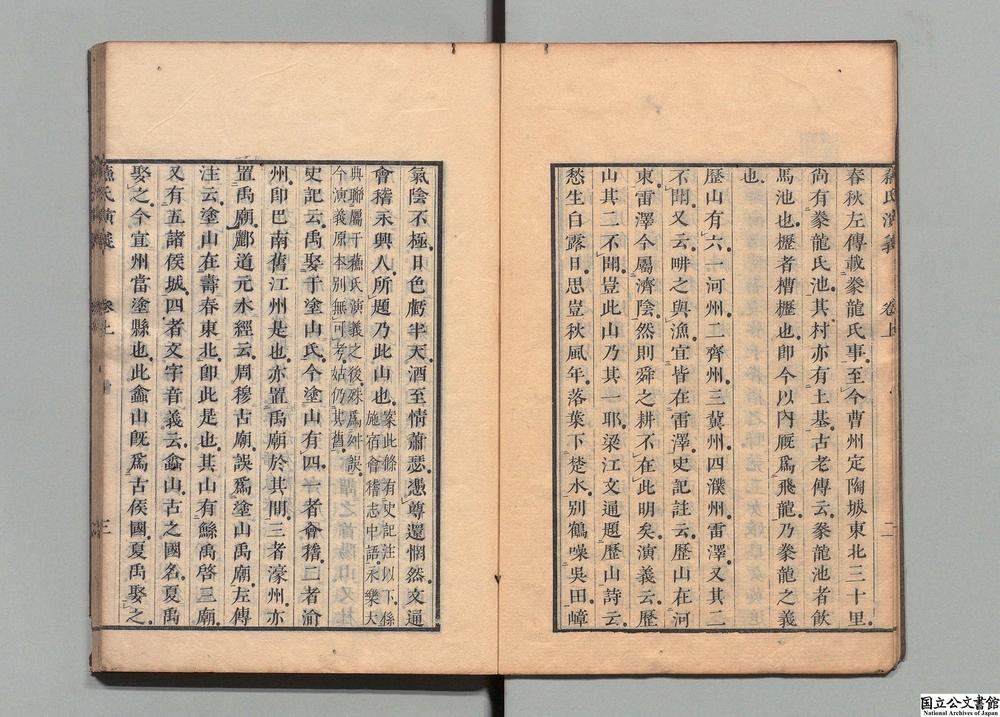 蘇氏演義 卷上 二
春秋左傳載豢龍氏事至今曹州定陶城東北三十里
尙有豢龍氏池其村亦有土基古老傳云豢龍池者飲
馬池也櫪者槽櫪也卽今以內厩爲飛龍乃豢龍之義
也
歷山有六一河州二齊州三冀州四濮州雷澤又其二
不聞又云畊之與漁宜皆在雷澤史記註云歷山在河
東雷澤今屬濟陰然則舜之耕不在此明矣演義云歷
山其二不聞豈此山乃其一耶梁江文通題歷山詩云
愁生白露日思豈秋風年落葉下楚水別鶴噪吳田嶂
氣陰不極日色虧半天酒至情蕭瑟憑尊還惘然文通
會稽永興人所題乃此山也
案此條有史記注以下係
施宿會稽志中語永樂大
典聯屬于蘇氏演義之後殊爲舛誤
今演義原本別無可考姑仍其舊
史記云禹娶于塗山氏今塗山有四一者會稽二者渝
州卽巴南舊江州是也亦置禹廟於其間三者濠州亦
置禹廟酈道元水經云周穆古廟誤爲塗山禹廟左傳
注云塗山在壽春東北卽此是也其山有鯀禹啓三廟
又有五諸侯城四者文字音義云嵞山古之國名夏禹
娶之今宣州當塗縣也此嵞山旣爲古侯國夏禹娶之
蘇氏演義 卷上 三
国立公文書館
National Archives of Japan